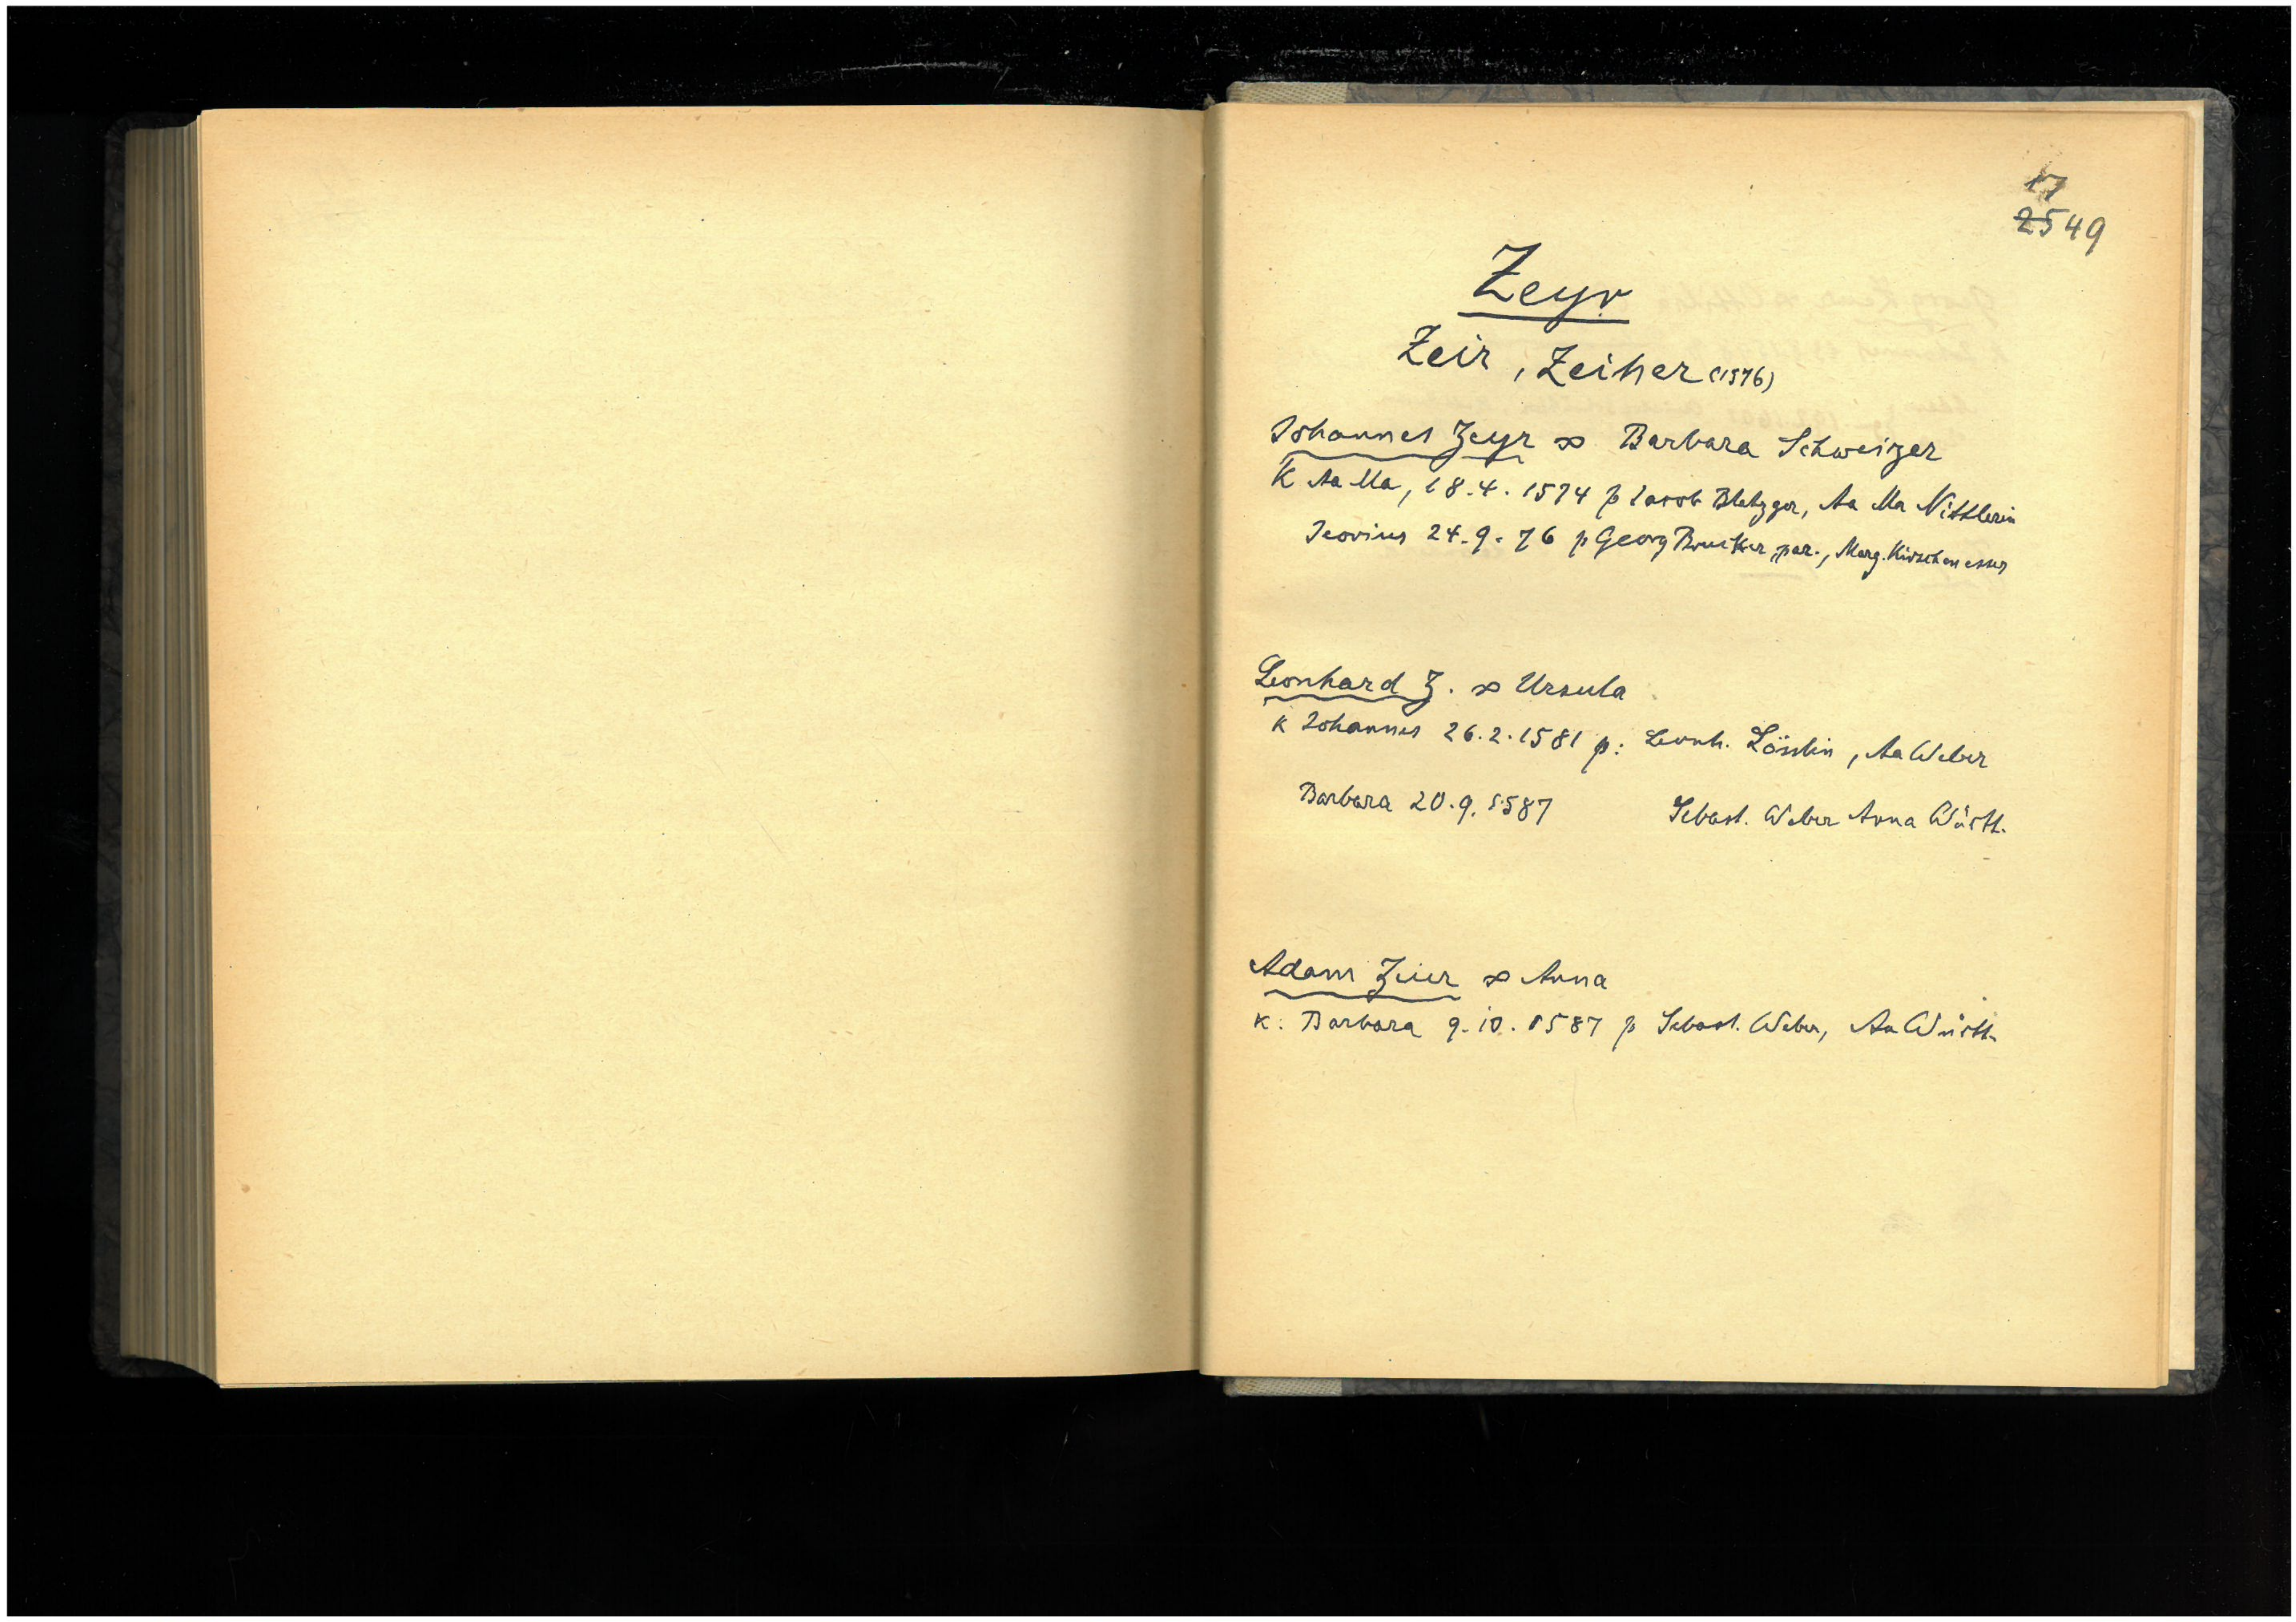 17
2549
Zeyr
Zeir, Zeiher (1576)
Johannes Zeyr ∞ Barbara Schweizer
K Aa Ma, 18.4.1574 p Jacob Metzger, Aa Ma Nittlerin
24.9.76 p Georg Brucker par., Marg. Kirschenesser
Leonhard Z. ∞ Ursula
K Johannes 26.2.1581 p: Leonh. Lösslin, Aa Weber
Barbara 20.9.1587 Sebast. Weber Anna
Adam Zeier ∞ Anna
K: Barbara 9.10.1587 p Sebast. Weber, Aa